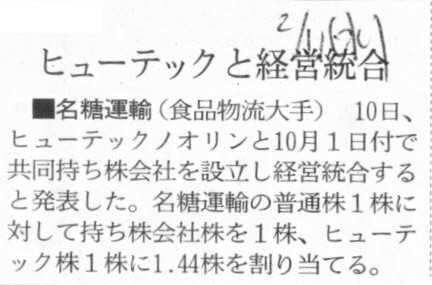 ヒューテックと経営統合
■名糖運輸（食品物流大手）　10日、
ヒューテックノオリンと10月１日付で
共同持ち株会社を設立し経営統合する
と発表した。名糖運輸の普通株１株に
対して持ち株会社株を１株、ヒューテ
ック株１株に1.44株を割り当てる。